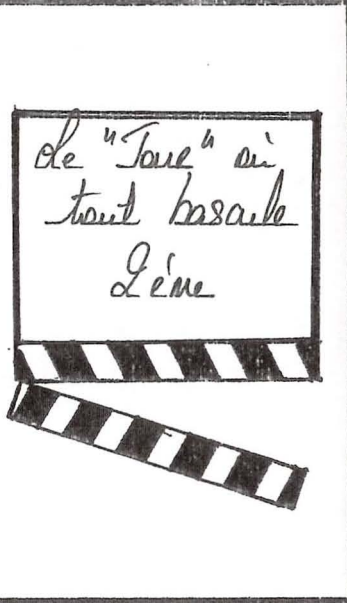 Le "Jour" où
tout bascule
2ème